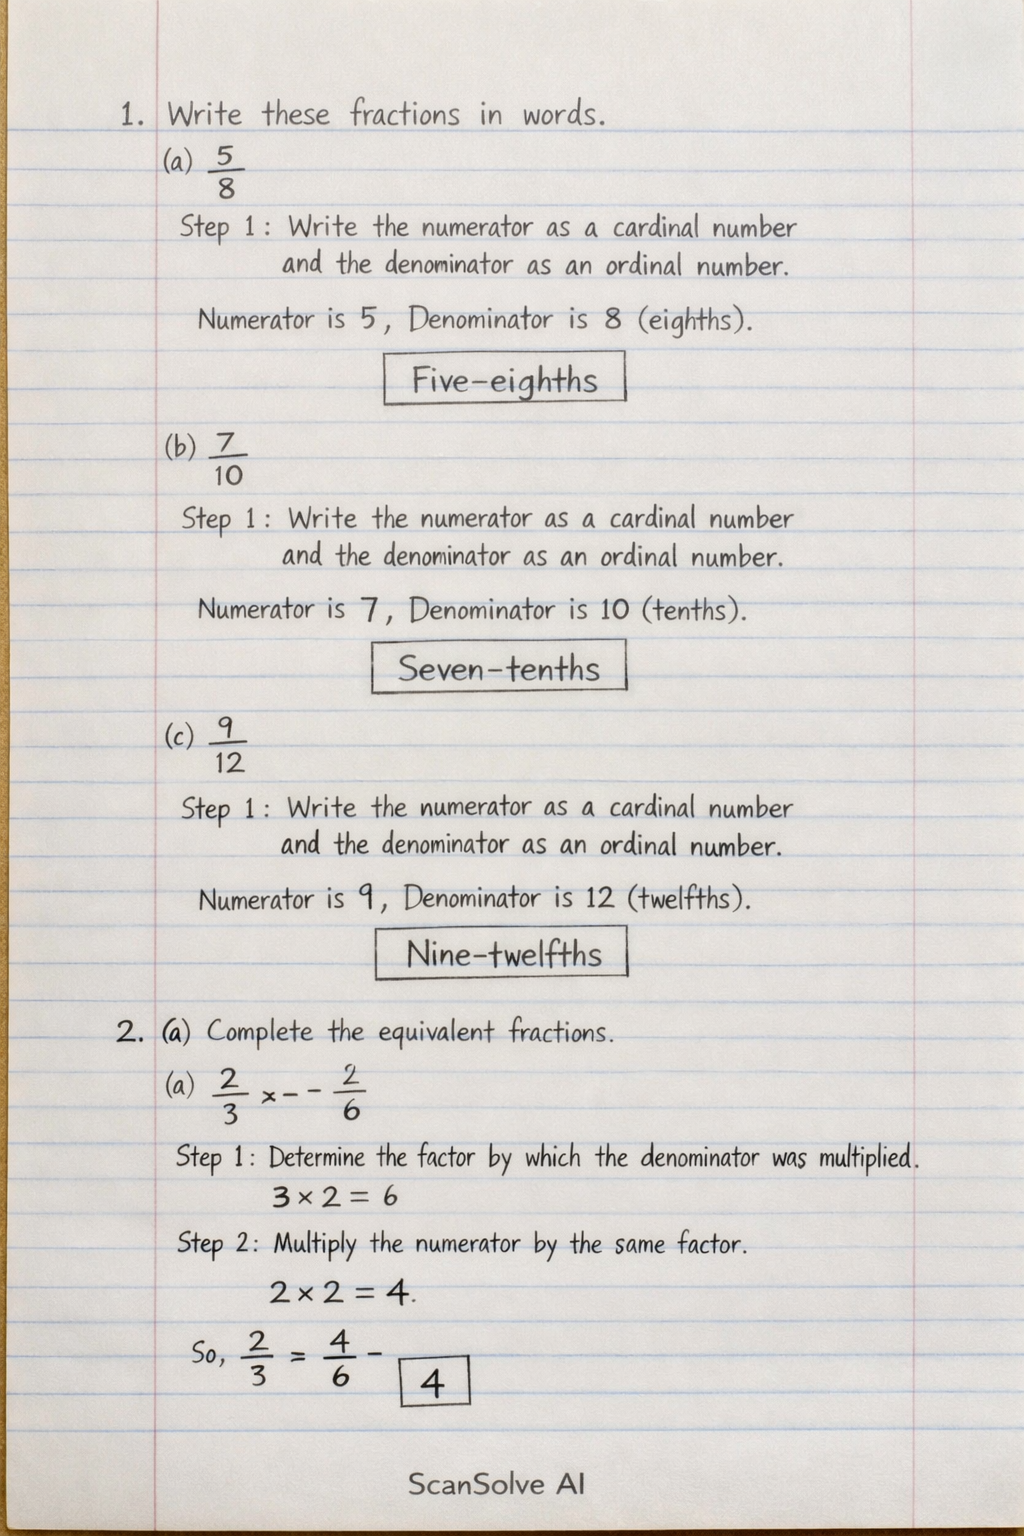 1. Write these fractions in words.
(a) 5/8
Step 1: Write the numerator as a cardinal number
and the denominator as an ordinal number.
Numerator is 5, Denominator is 8 (eighths).
Five-eighths
(b) 7/10
Step 1: Write the numerator as a cardinal number
and the denominator as an ordinal number.
Numerator is 7, Denominator is 10 (tenths).
Seven-tenths
(c) 9/12
Step 1: Write the numerator as a cardinal number
and the denominator as an ordinal number.
Numerator is 9, Denominator is 12 (twelfths).
Nine-twelfths
2. (a) Complete the equivalent fractions.
(a) 2/3 ×-- 2/6
Step 1: Determine the factor by which the denominator was multiplied.
3 × 2 = 6
Step 2: Multiply the numerator by the same factor.
2 × 2 = 4.
So, 2/3 = 4/6 - 4
ScanSolve AI